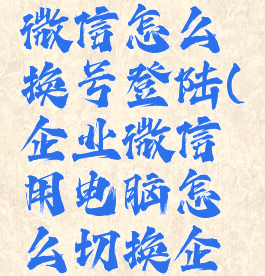 微信怎么
换号登陆(
企业微信
用电脑怎
么切换企